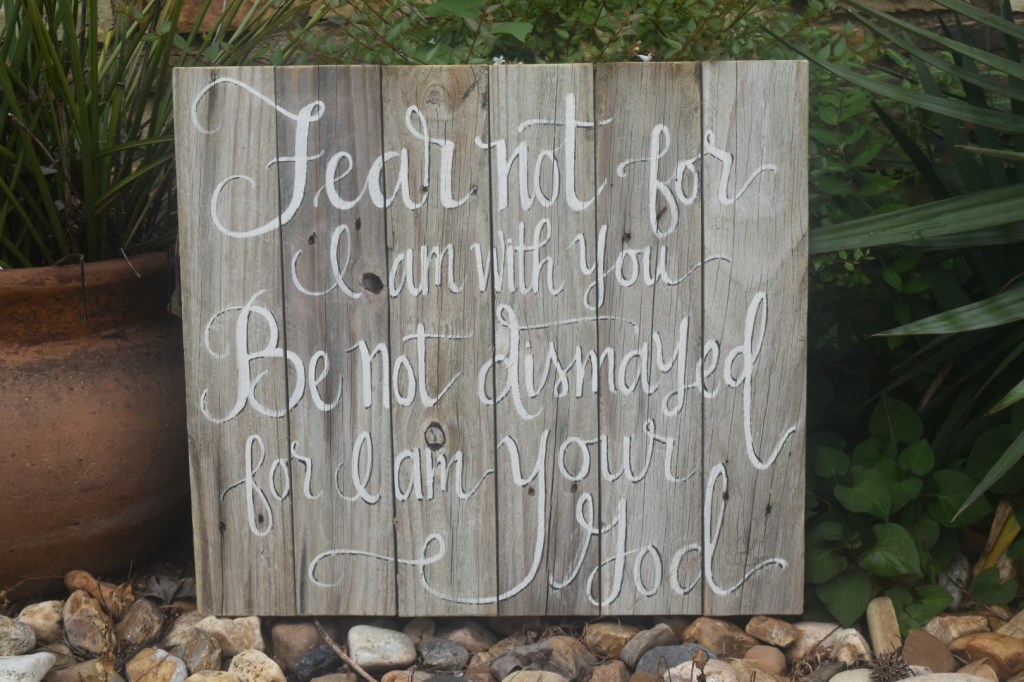 Fear not for
I am with you
Be not dismayed
for I am your
God